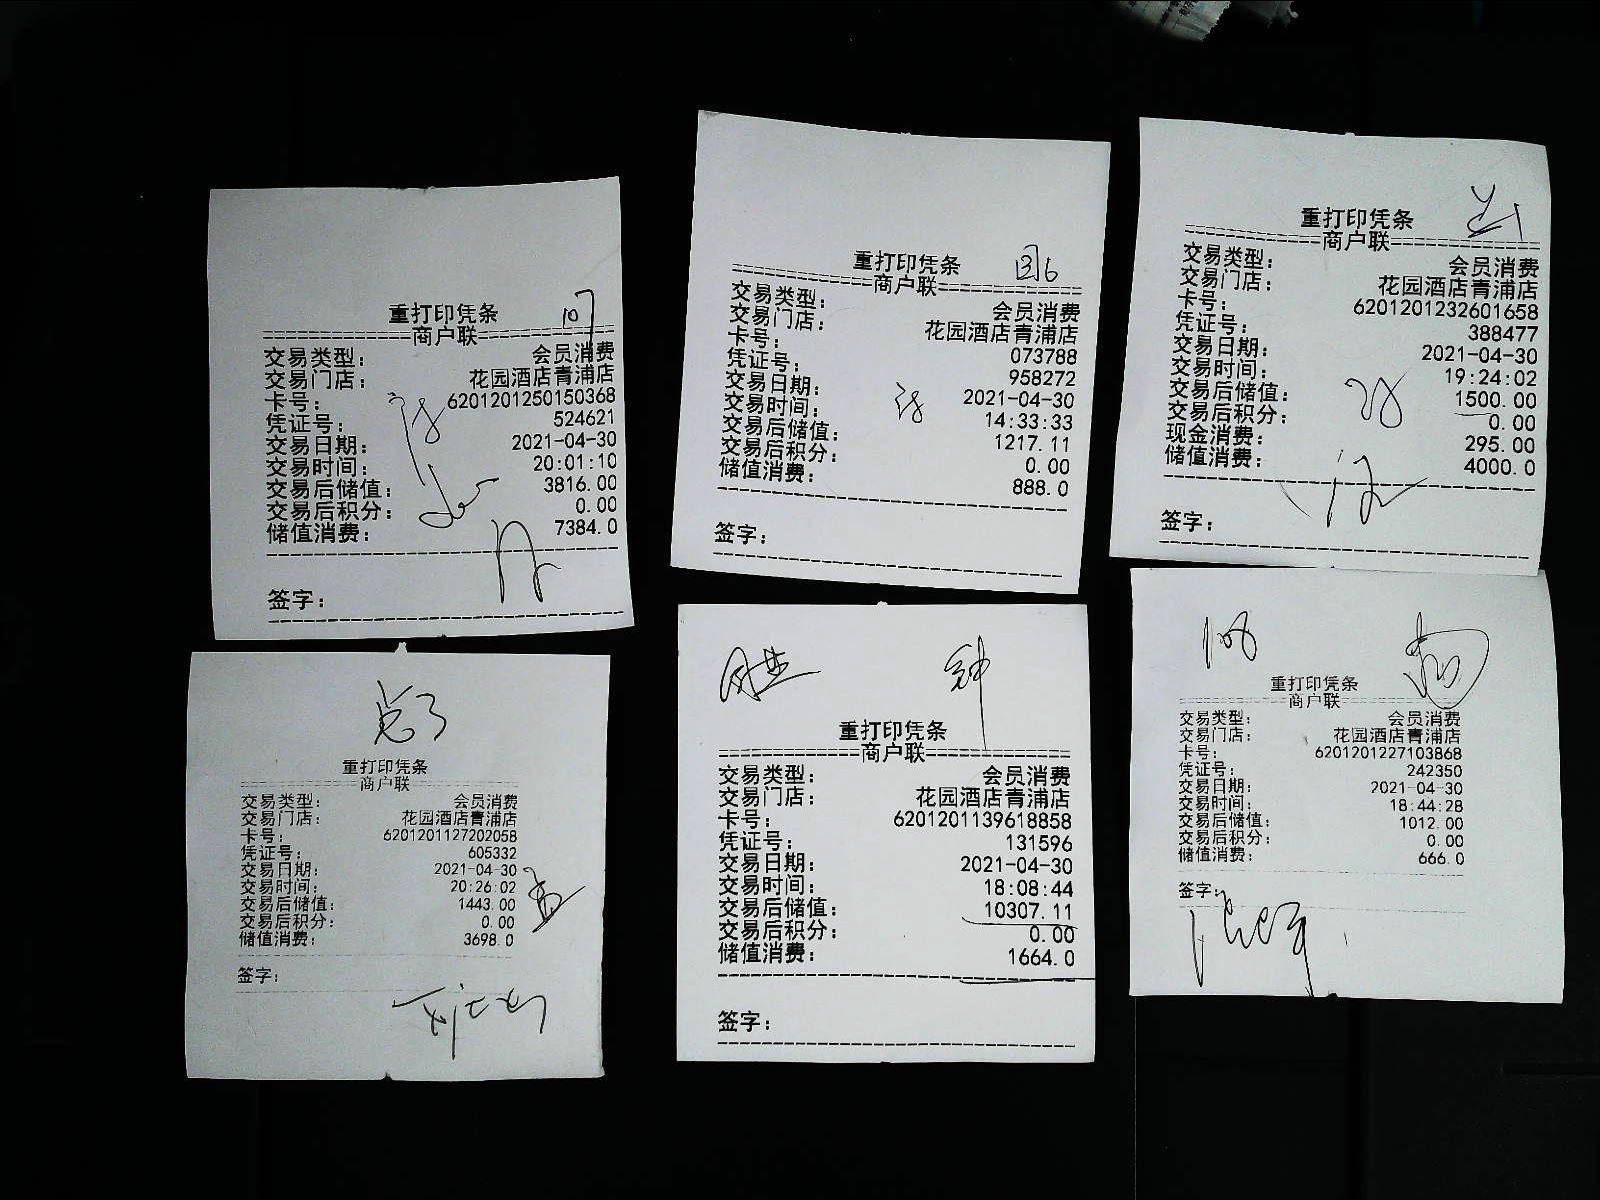 107
重打印凭条
商户联
交易类型: 会员消费
交易门店: 花园酒店青浦店
卡号: 6201201250150368
凭证号: 524621
交易日期: 2021-04-30
交易时间: 20:01:10
交易后储值: 3816.00
交易后积分: 0.00
储值消费: 7384.0
签字:
重打印凭条
商户联
交易类型: 会员消费
交易门店: 花园酒店青浦店
卡号: 073788
凭证号: 958272
交易日期: 2021-04-30
交易时间: 14:33:33
交易后储值: 1217.11
交易后积分: 0.00
储值消费: 888.0
签字:
重打印凭条
商户联
交易类型: 会员消费
交易门店: 花园酒店青浦店
卡号: 6201201232601658
凭证号: 388477
交易日期: 2021-04-30
交易时间: 19:24:02
交易后储值: 1500.00
交易后积分: 0.00
现金消费: 295.00
储值消费: 4000.0
签字:
总3
重打印凭条
商户联
交易类型: 会员消费
交易门店: 花园酒店青浦店
卡号: 6201201127202058
凭证号: 605332
交易日期: 2021-04-30
交易时间: 20:26:02
交易后储值: 1443.00
交易后积分: 0.00
储值消费: 3698.0
签字:
重打印凭条
商户联
交易类型: 会员消费
交易门店: 花园酒店青浦店
卡号: 6201201139618858
凭证号: 131596
交易日期: 2021-04-30
交易时间: 18:08:44
交易后储值: 10307.11
交易后积分: 0.00
储值消费: 1664.0
签字:
108
重打印凭条
商户联
交易类型: 会员消费
交易门店: 花园酒店青浦店
卡号: 6201201227103868
凭证号: 242350
交易日期: 2021-04-30
交易时间: 18:44:28
交易后储值: 1012.00
交易后积分: 0.00
储值消费: 666.0
签字: